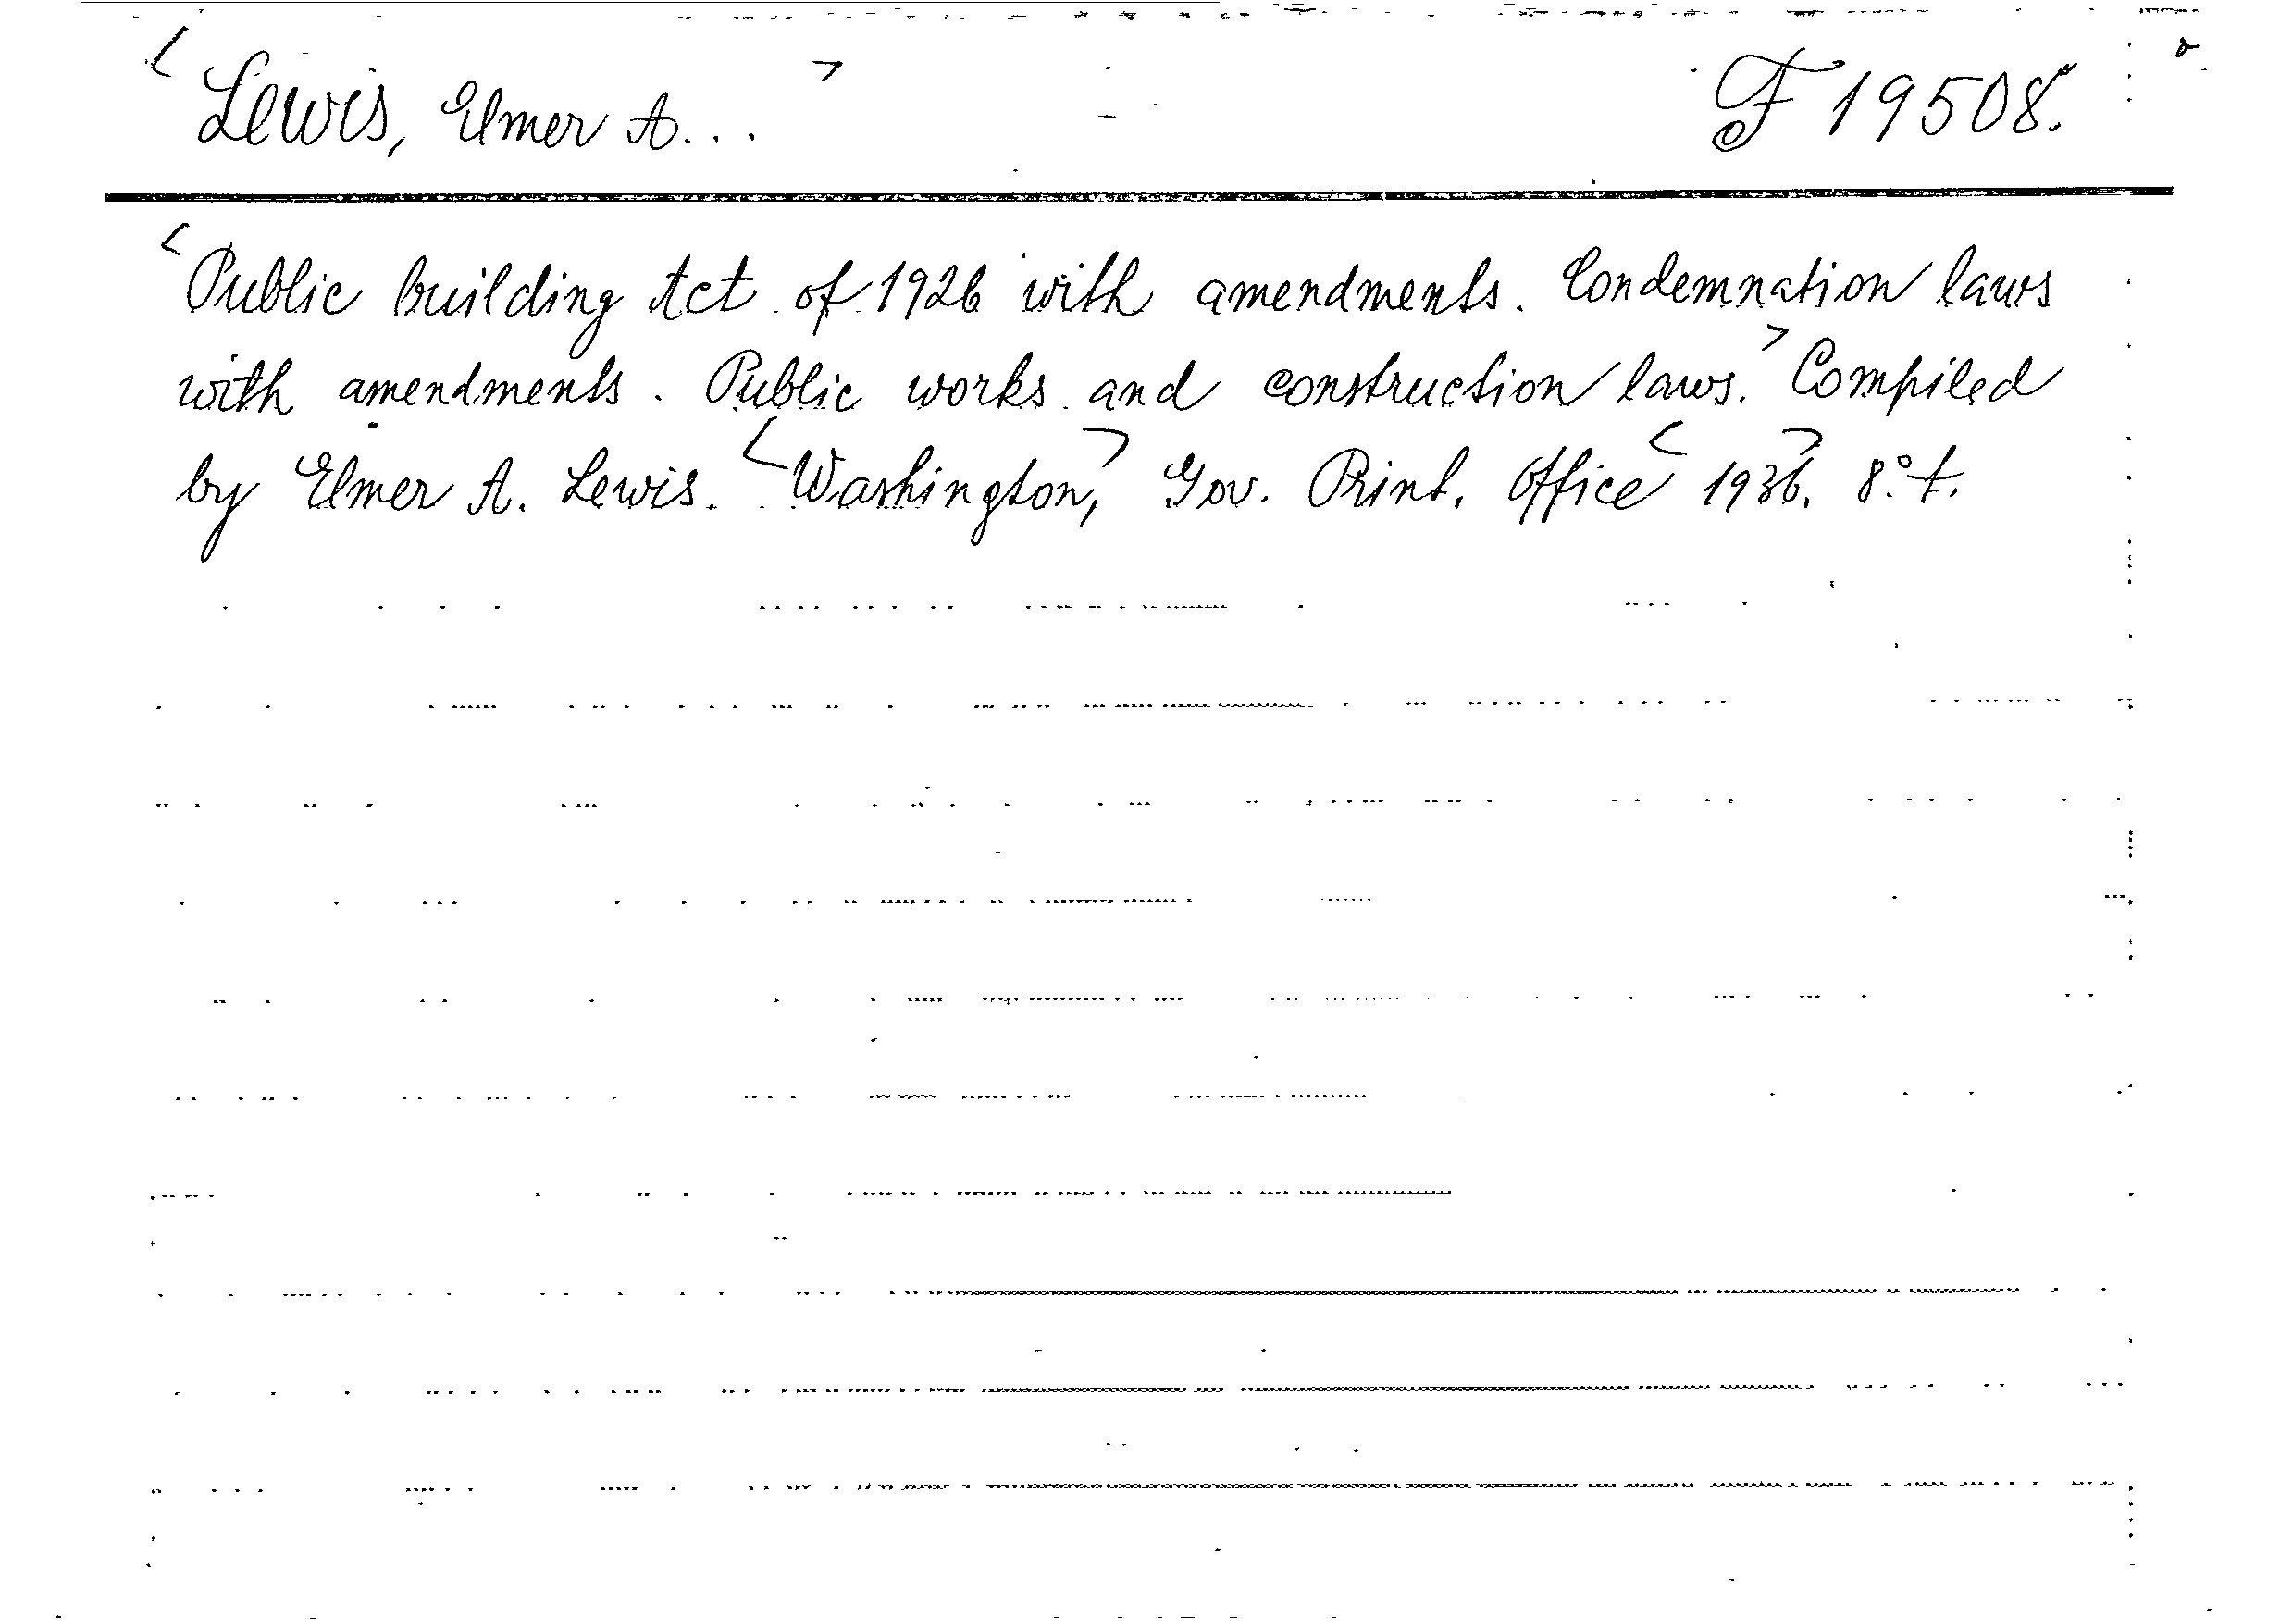 <Lewis, Elmer A...> F 19508.
<Public building Act of 1926 with amendments. Condemnation laws
with amendments. Public works and construction laws.> Compiled
by Elmer A. Lewis. <Washington,> Gov. Print. Office <1936>. 8° t.